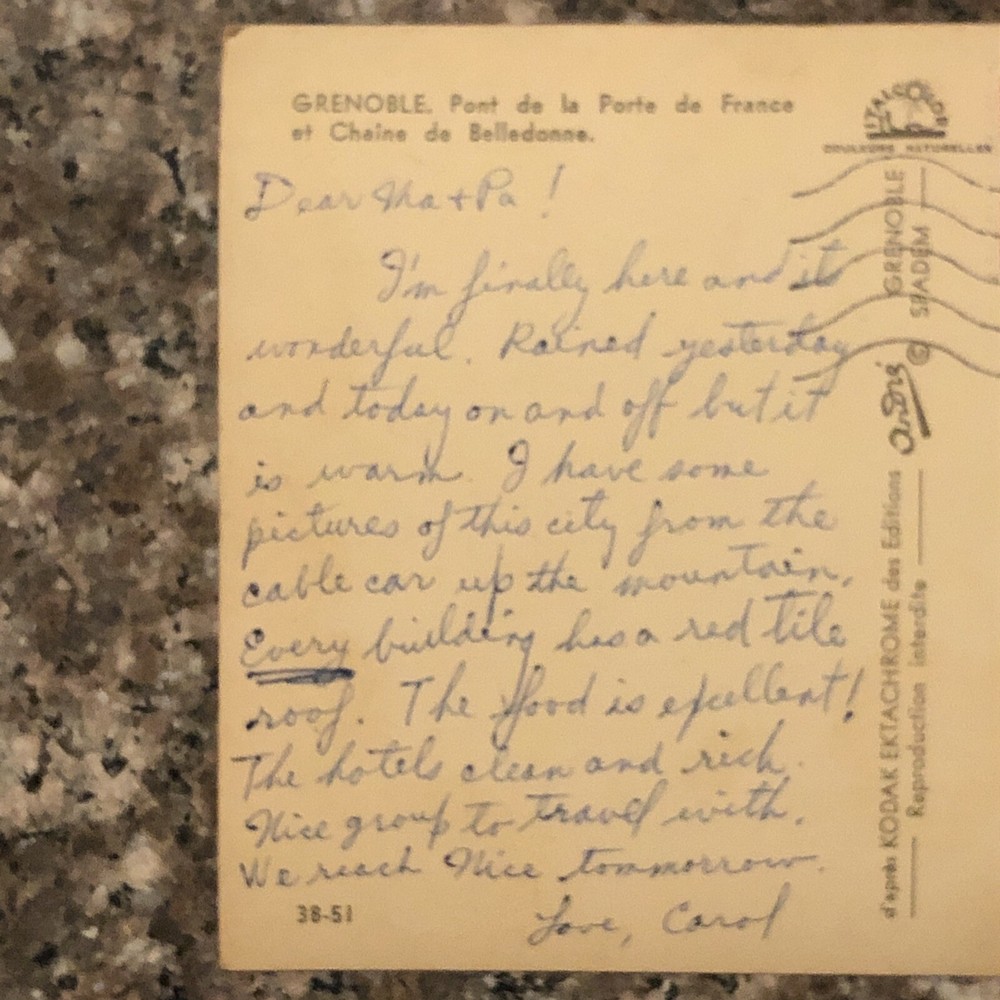 GRENOBLE. Pont de la Porte de France
et Chaîne de Belledonne.
Dear Ma + Pa!
I'm finally here and its
wonderful. Rained yesterday
and today on and off but it
is warm. I have some
pictures of this city from the
cable car up the mountain.
Every building has a red tile
roof. The food is excellent!
The hotels clean and rich.
Nice group to travel with.
We reach Nice tommorrow.
Love, Carol
38-51
COULEURS NATURELLES
d'après KODAK EKTACHROME des Editions André GRENOBLE
Reproduction interdite © SPADEM